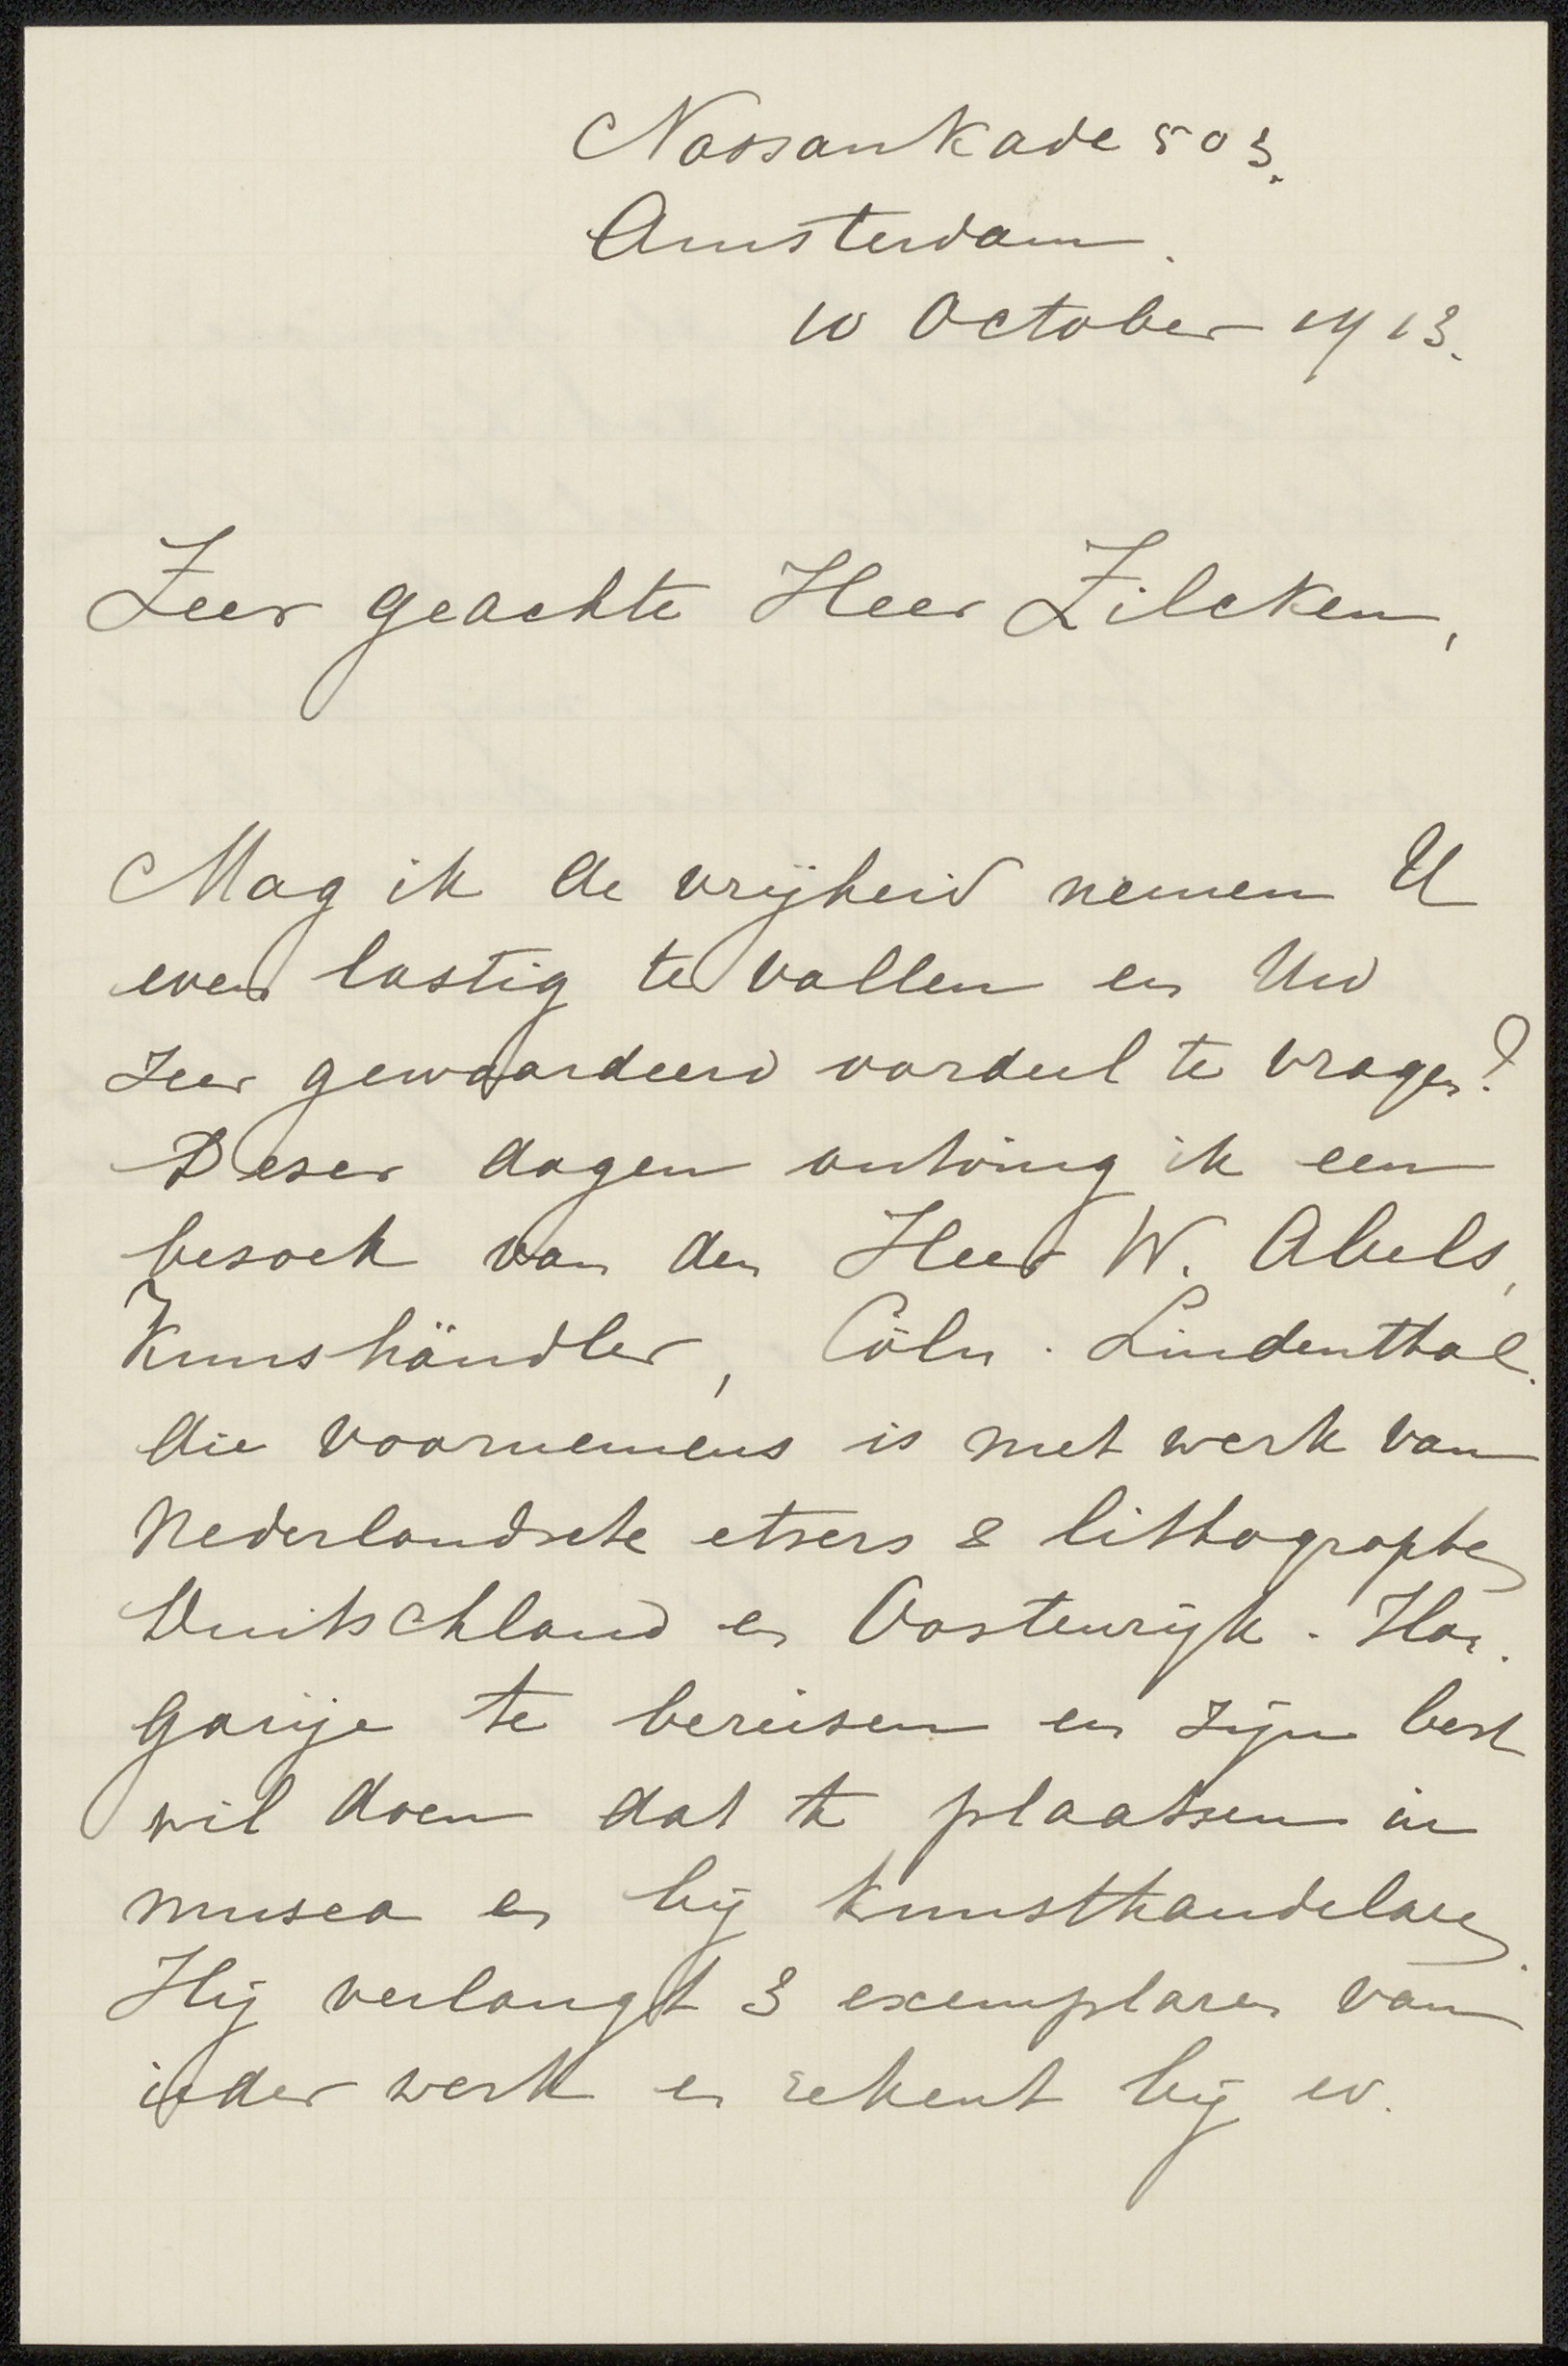 Nassaukade 503.
Amsterdam.
10 October 1913.
Zeer geachte Heer Zilcken,
Mag ik de vrijheid nemen U
even lastig te vallen en Uw
zeer gewaardeerd oordeel te vragen?
Dezer dagen ontving ik een
bezoek van den Heer W. Abels,
Kunshändler, Cöln. Lindenthal.
die voornemens is met werk van
Nederlandsche etsers & lithographen
Duitschland en Oostenrijk. Hon.
garije te bereisen en zijn best
wil doen dat te plaatsen in
musea en bij kunsthandelaren.
Hij verlangt 3 exemplaren van
ieder werk en rekent bij ev.